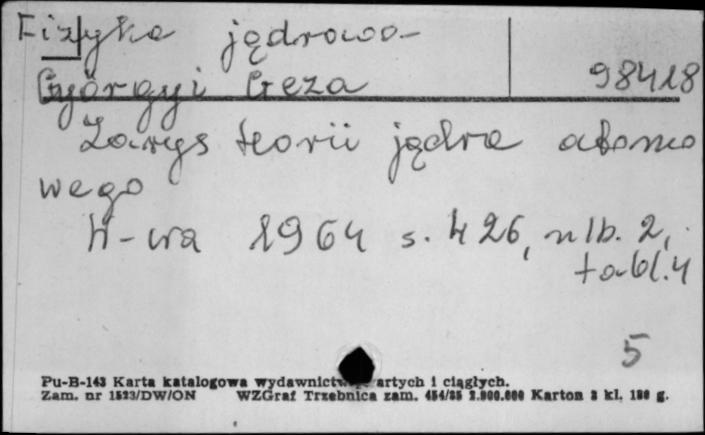 Fizyka jądrowa
98418
Györgyi Geza
Zarys teorii jądra atomo
wego
W-wa 1964 s. 426, nlb. 2,
tabl. 4
5
Pu-B-143 Karta katalogowa wydawnictw artych i ciągłych.
Zam. nr 1523/DW/ON WZGraf Trzebnica zam. 454/85 2.000.000 Karton 3 kl. 180 g.